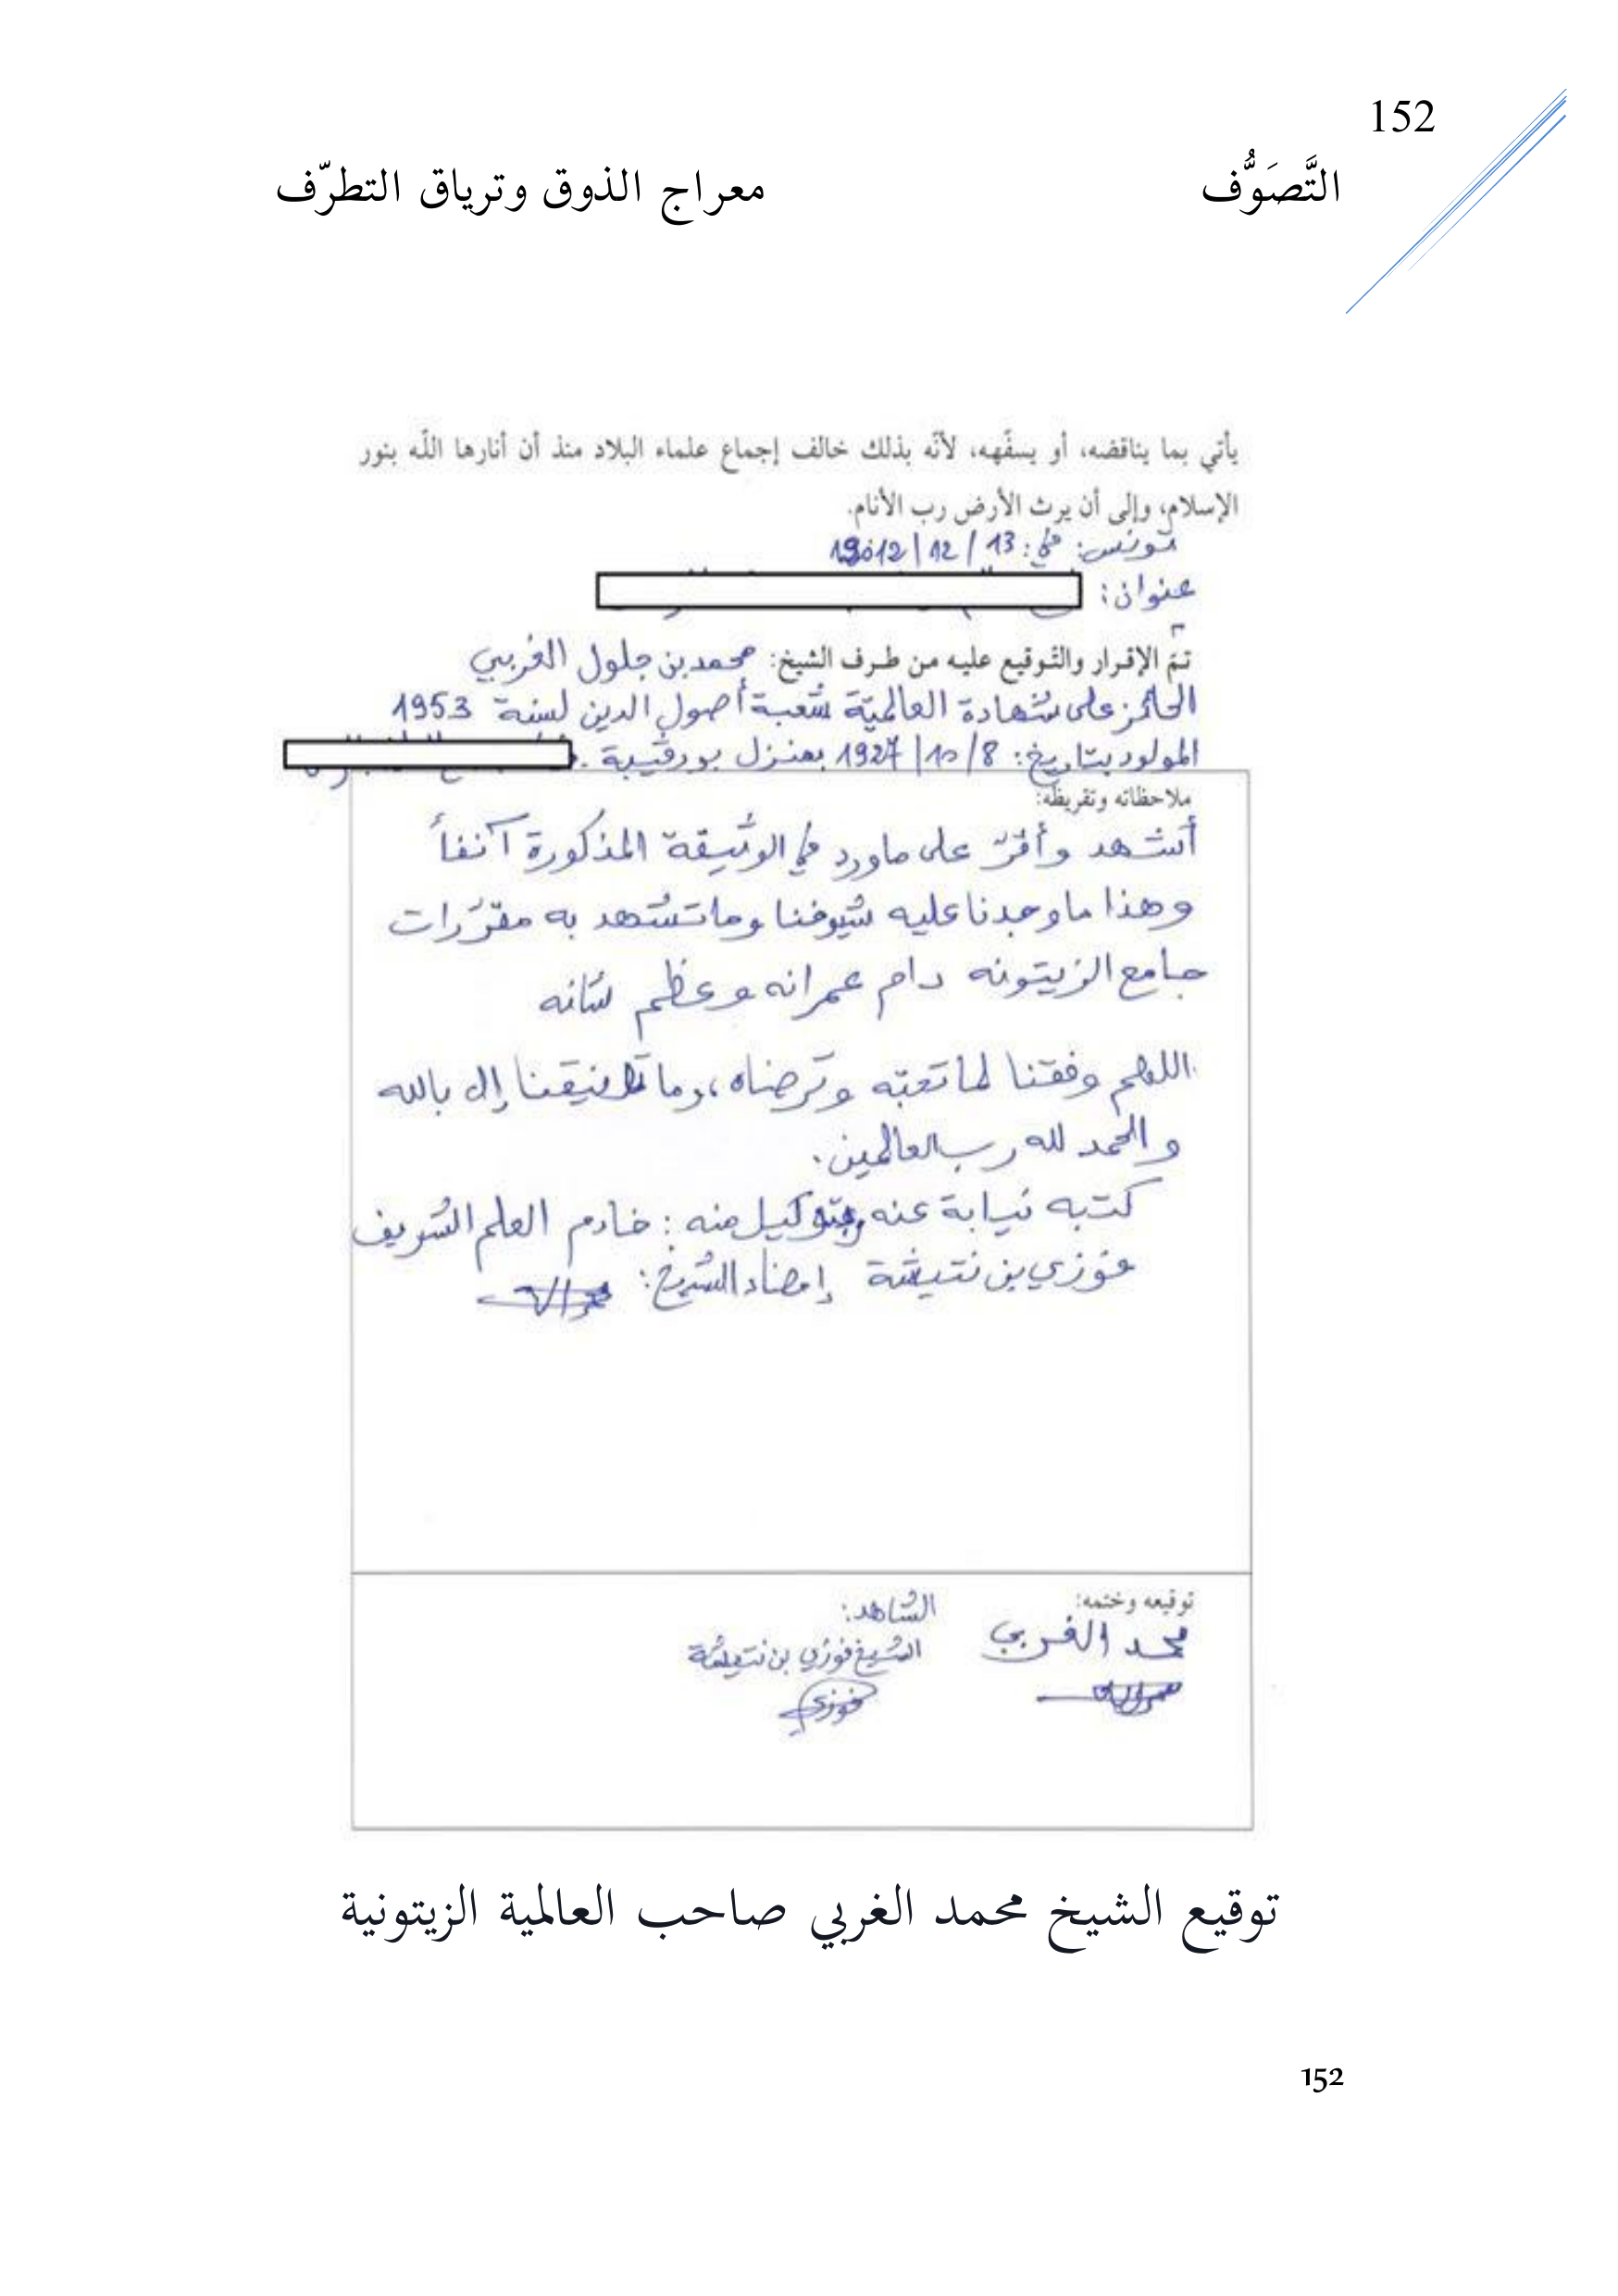 152
التَّصَوُّف معراج الذوق وترياق التطرّف
يأتي بما يناقضه، أو يسفّهه، لأنّه بذلك خالف إجماع علماء البلاد منذ أن أنارها اللّه بنور
الإسلام، وإلى أن يرث الأرض رب الأنام.
تونس: في: 13/12/2012
عنوان:
تمّ الإقرار والتّوقيع عليه من طرف الشيخ: محمد بن جلول الغربي
الحائز على شهادة العالميّة شعبة أصول الدين لسنة 1953
المولود بتاريخ: 8/10/1927 بمنزل بورقيبة .
ملاحظاته وتقريظه:
أشهد وأقرّ على ما ورد في الوثيقة المذكورة آنفاً
وهذا ما وجدنا عليه شيوخنا وما تشهد به مقرّرات
جامع الزيتونه دام عمرانه وعظم شانه
اللهم وفقنا لما تحبّه وترضاه، وما توفيقنا إلا بالله
والحمد لله رب العالمين.
كتبه نيابة عنه وبتوكيل منه : خادم العلم الشريف
فوزي بن نتيشة إمضاء الشيخ:
توقيعه وختمه: الشاهد:
محمد الغربي الشيخ فوزي بن نتيشة
فوزي
توقيع الشيخ محمد الغربي صاحب العالمية الزيتونية
152